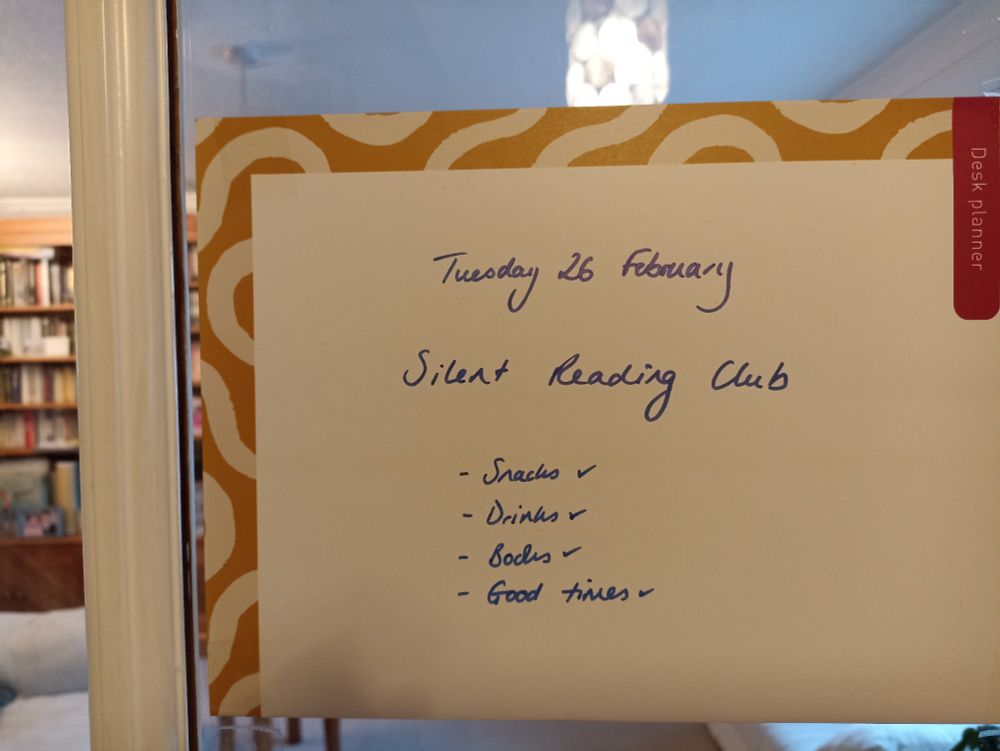 Desk planner
Tuesday 26 February
Silent Reading Club
- Snacks ✓
- Drinks ✓
- Books ✓
- Good times ✓